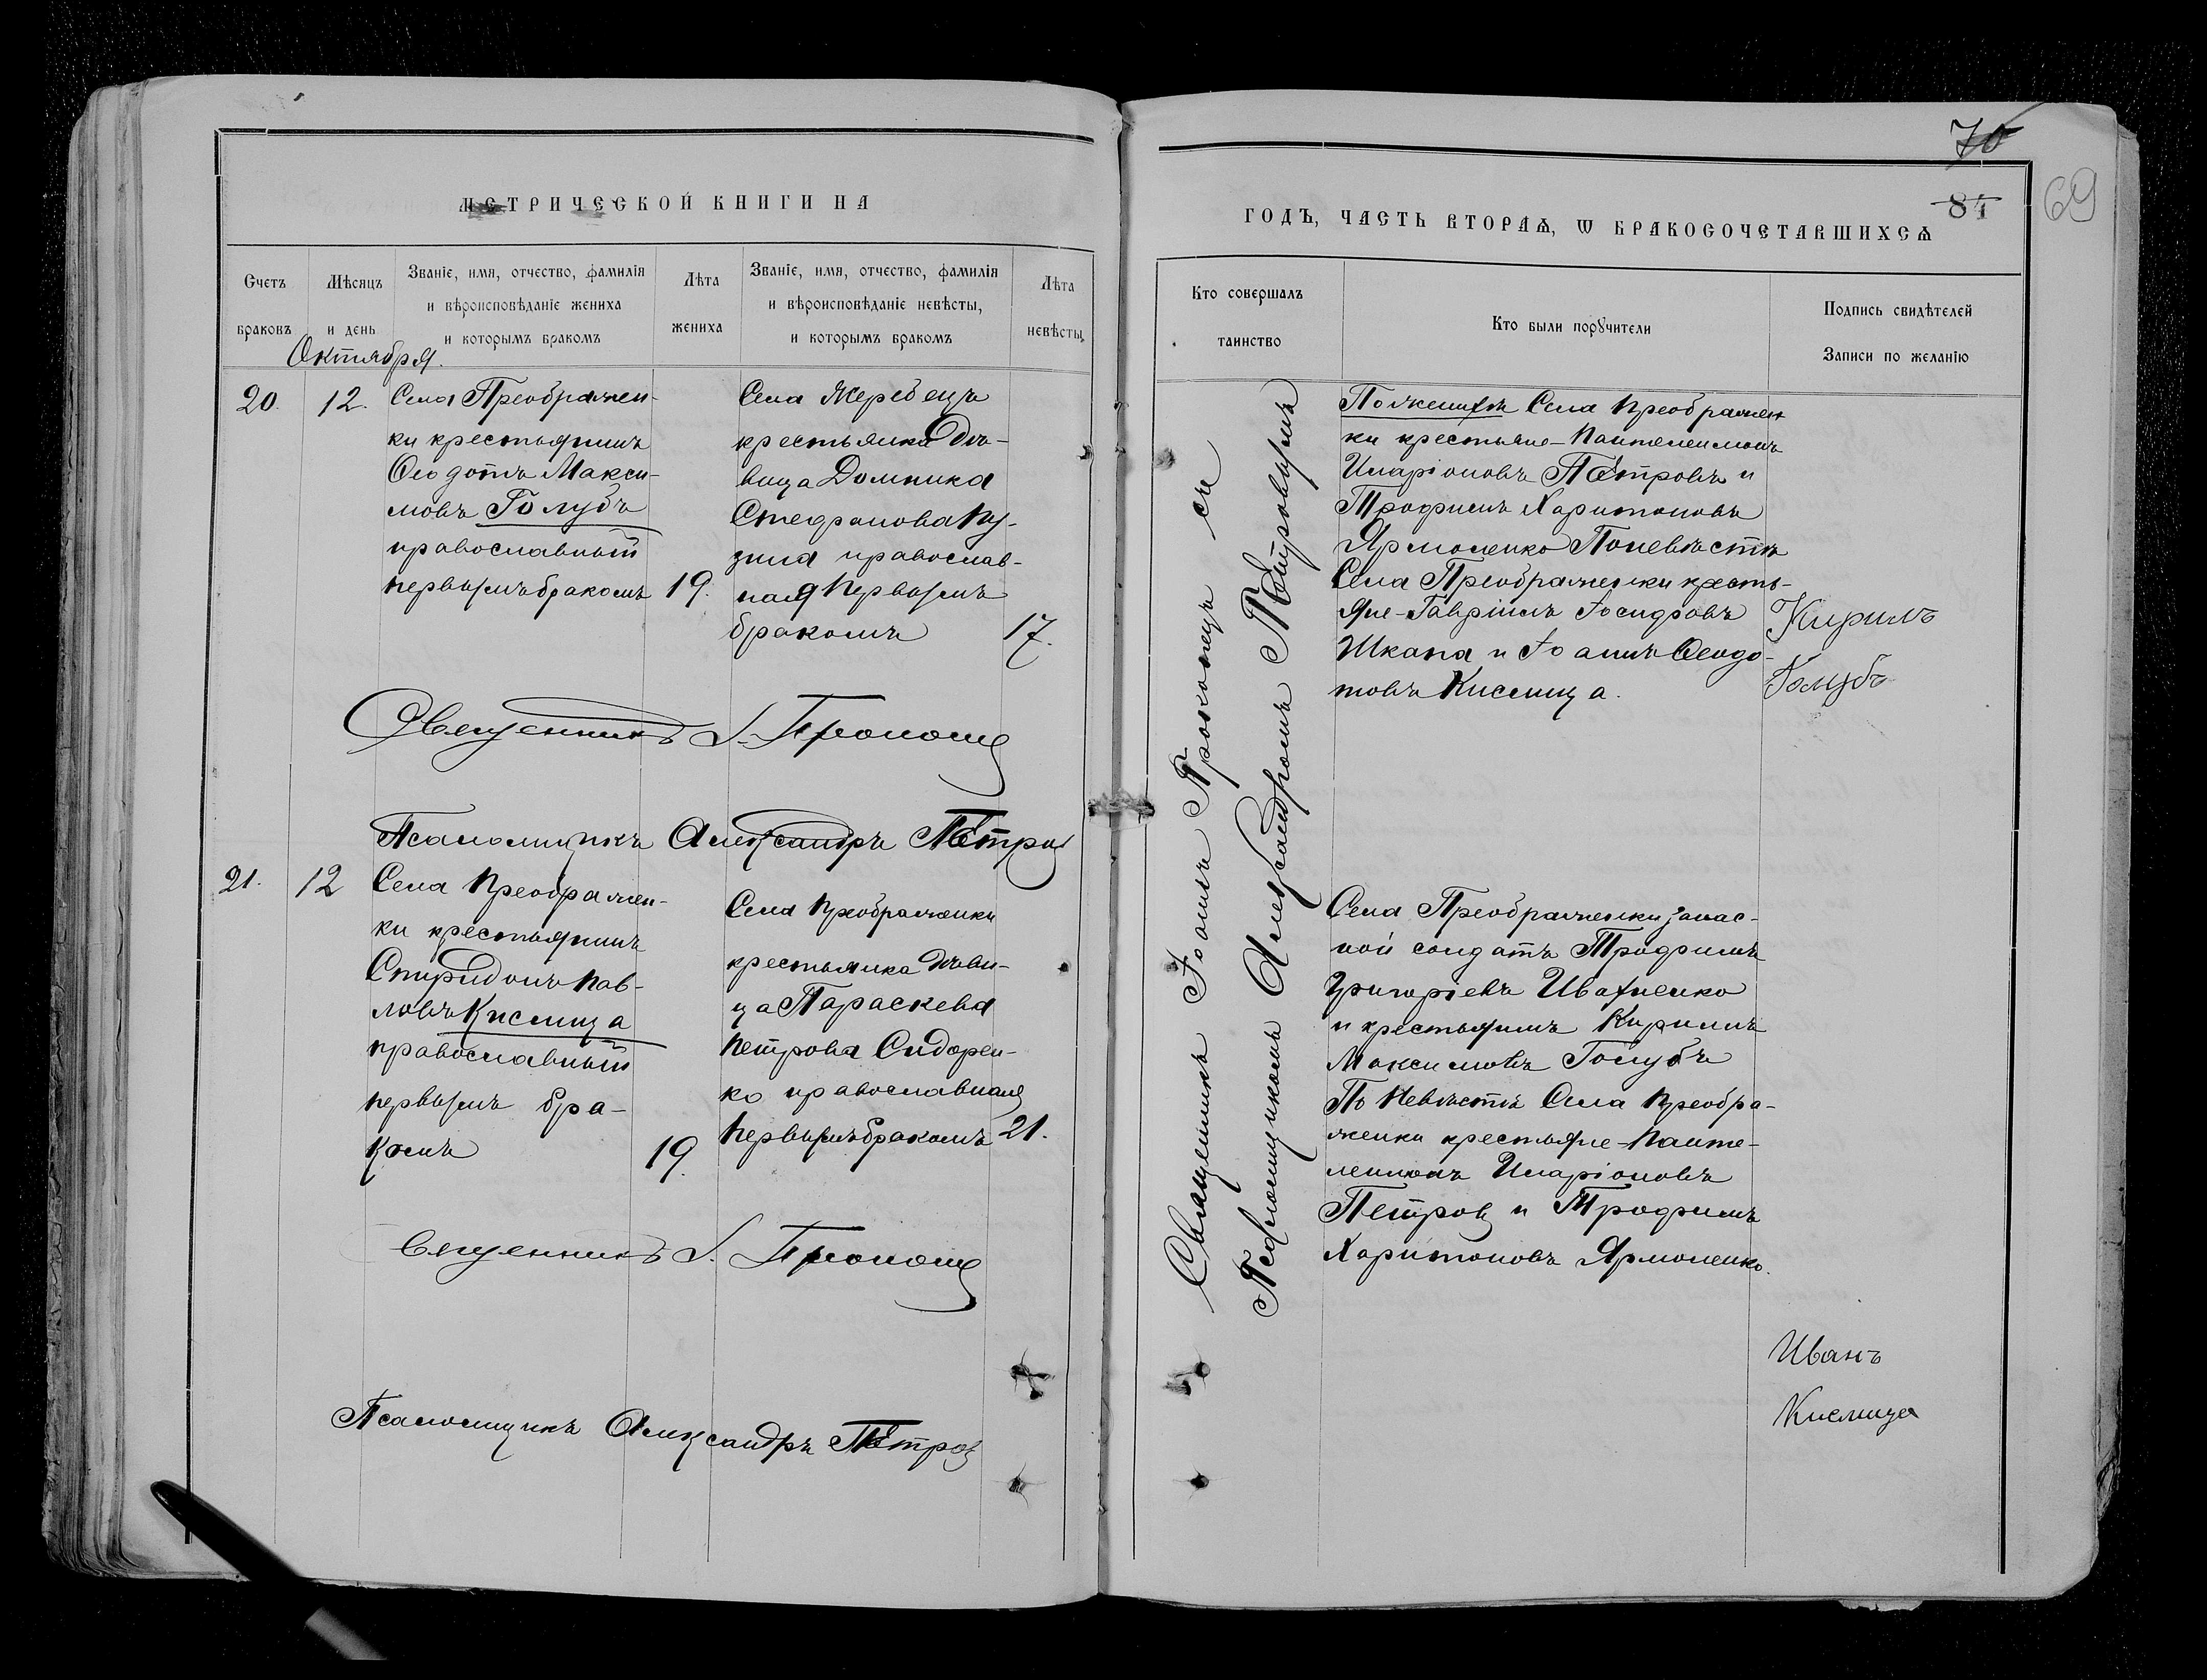 МЕТРИЧЕСКОЙ КНИГИ НА
Счетъ браковъ
Мѣсяцъ и день
Званіе, имя, отчество, фамилія
и вѣроисповѣданіе жениха
и которымъ бракомъ
Лѣта жениха
Званіе, имя, отчество, фамилія
и вѣроисповѣданіе невѣсты,
и которымъ бракомъ
Лѣта невѣсты
Октября.
20.
12.
Села Преображен-
ки крестьянинъ
Ѳеодотъ Макси-
мовъ Голубъ
православный
первымъ бракомъ
19.
Села Жеребецъ
крестьянка Дѣ-
вица Домника
Стефанова Пу-
зина православ-
ная первымъ
бракомъ
17.
Священникъ І. Прокопец
Псаломщикъ Александръ Петров
21.
12
Села Преображен-
ки крестьянинъ
Спиридонъ Пав-
ловъ Кислица
православный
первымъ бра-
комъ
19.
Села Преображенки
крестьянка дѣви-
ца Параскева
Петрова Сидорен-
ко православная
первымъ бракомъ
21.
Священникъ І. Прокопец
Псаломщикъ Александръ Петров
70
84
69
ГОДЪ, ЧАСТЬ ВТОРАѦ, Ѡ БРАКОСОЧЕТАВШИХСѦ
Кто совершалъ
таинство
Кто были порꙋчители
Подпись свидѣтелей
Записи по желанію
Священникъ Іоаннъ Прокопецъ съ
Псаломщикомъ Александромъ Петровымъ
По женихѣ Села Преображен
ки крестьяне - Пантелеимонъ
Иларіоновъ Петровъ и
Трофимъ Харитоновъ
Ярмоленко По невѣстѣ
Села Преображенки кресть-
яне - Гавріилъ Іосифовъ
Шкапа и Іоаннъ Ѳеодо-
товъ Кислица.
Кирилъ
Голубъ
Села Преображенки запас-
ной солдатъ Трофимъ
Григоріевъ Ивахненко
и крестьянинъ Кириллъ
Максимовъ Голубъ
По Невѣстѣ Села Преобра-
женки крестьяне - Панте-
леимонъ Иларіоновъ
Петров и Трофимъ
Харитоновъ Ярмоленко.
Иванъ
Кислица